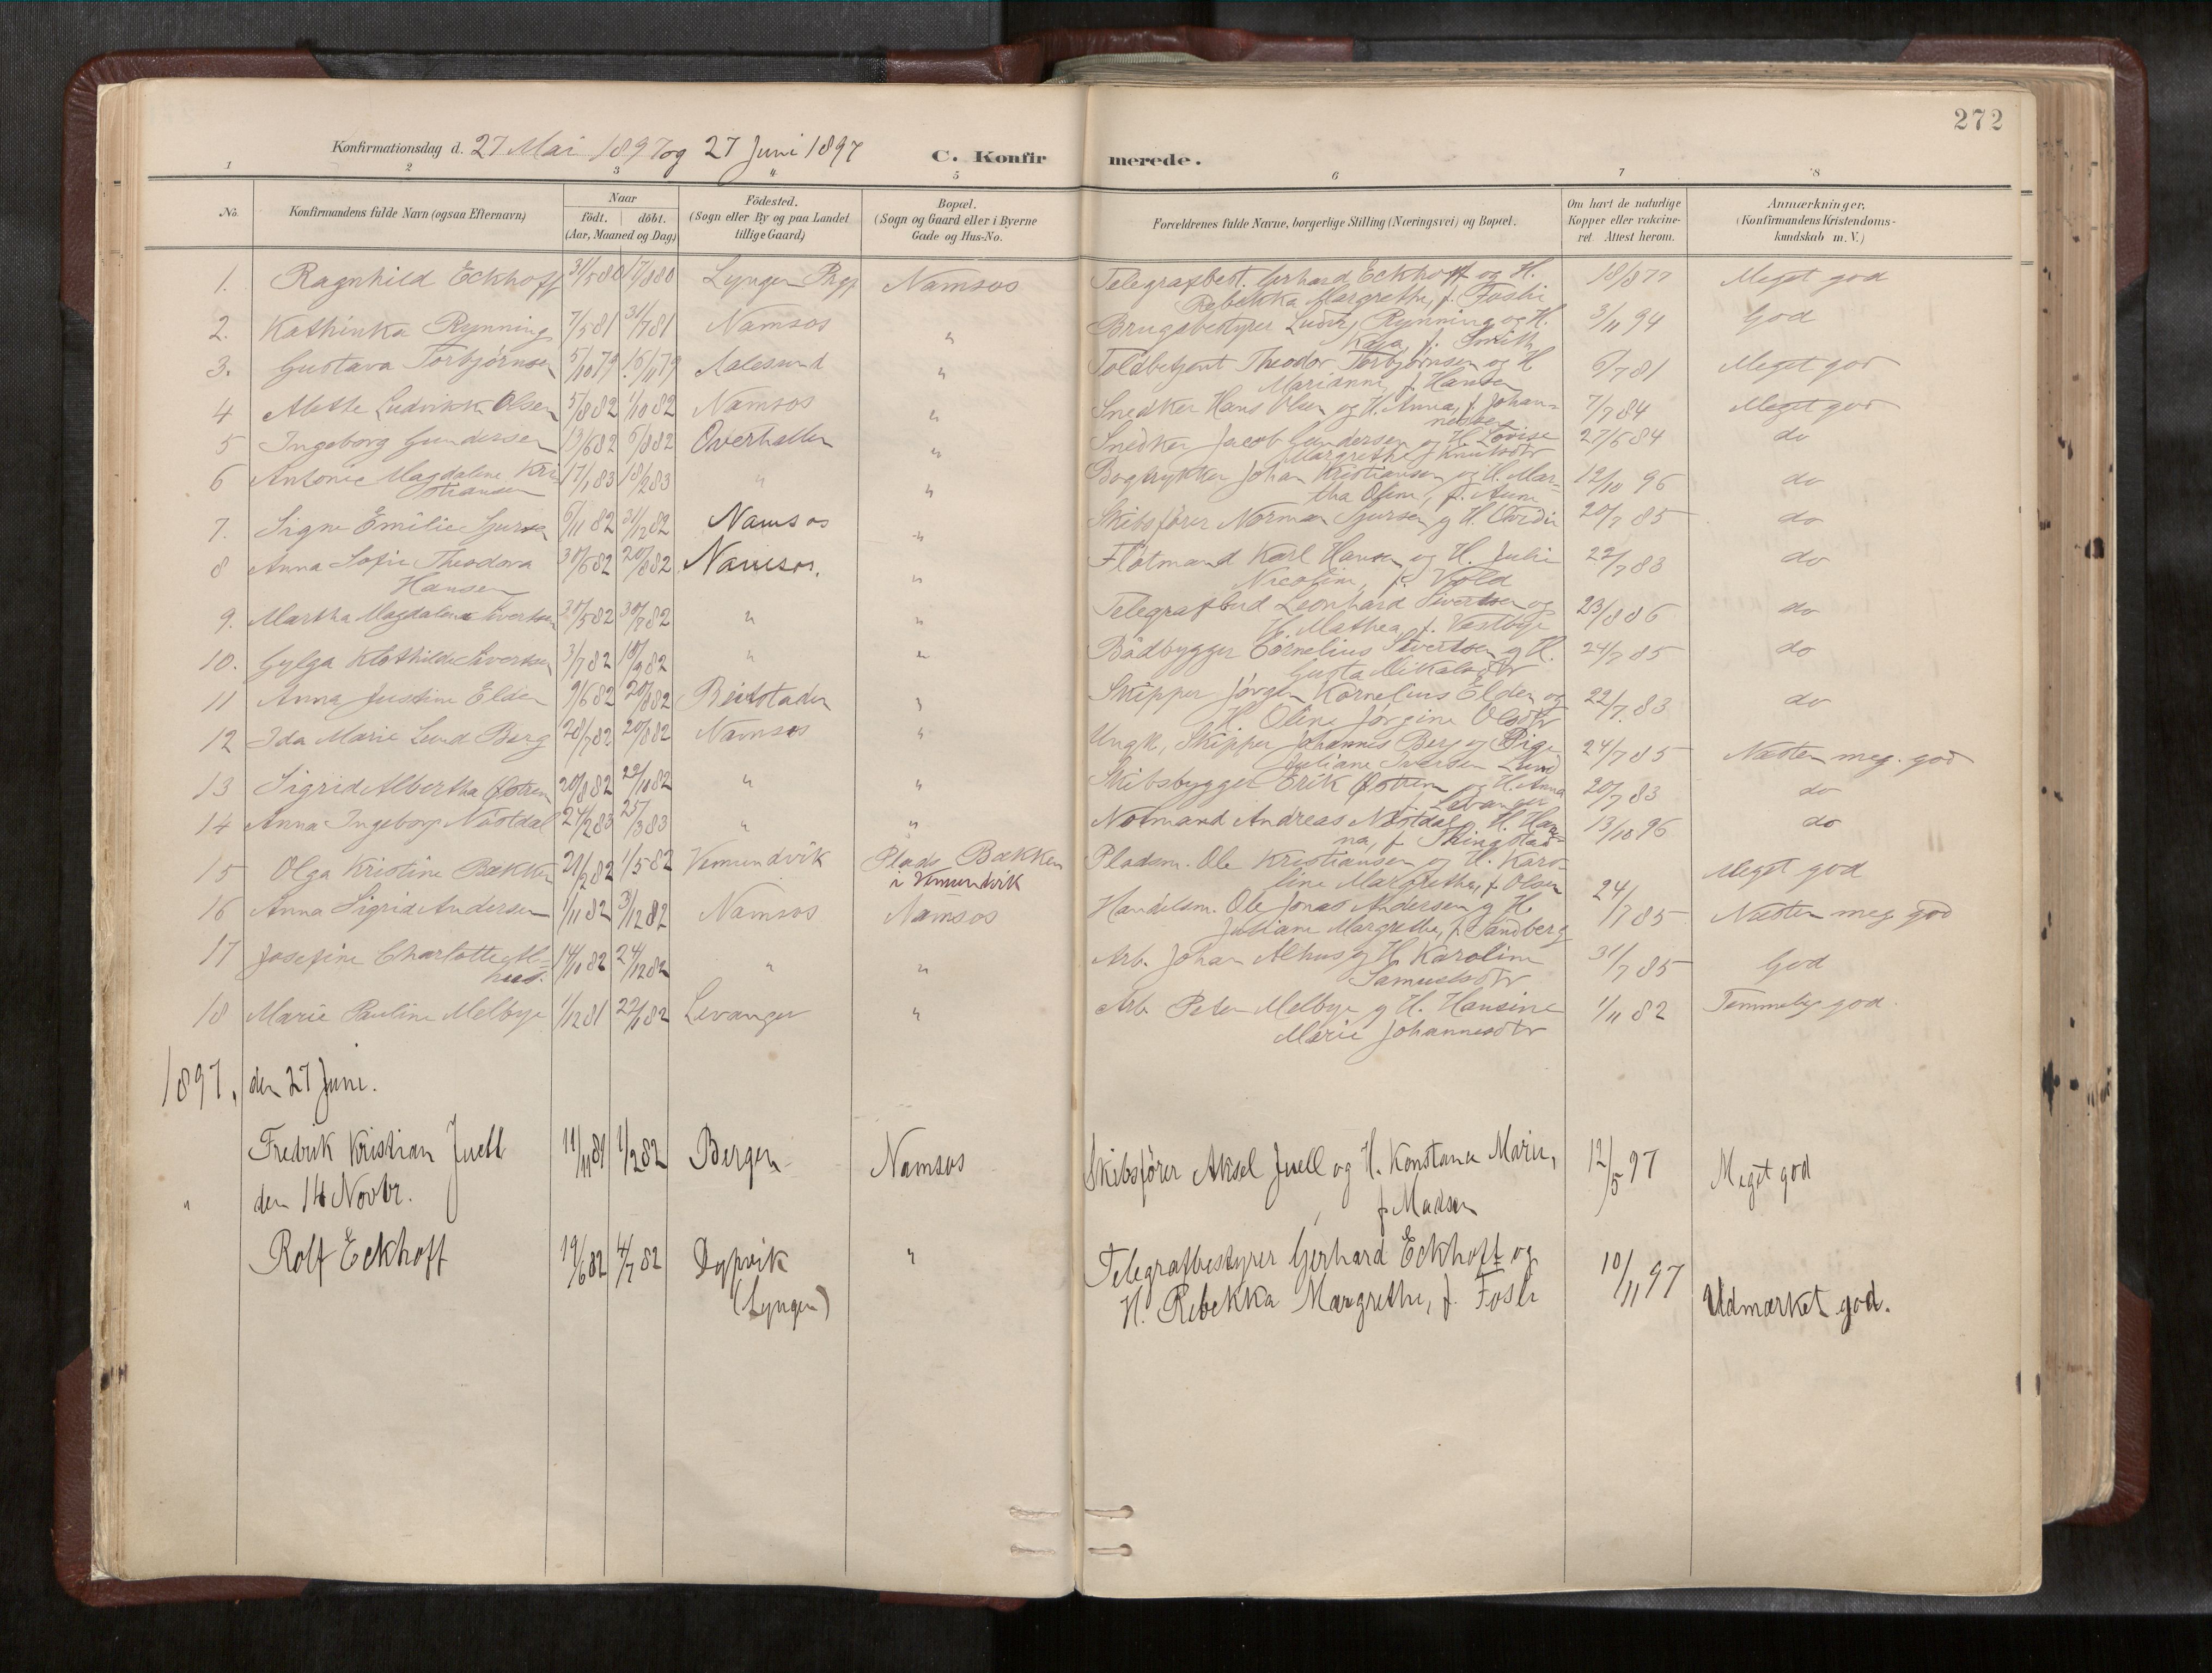 272
Konfirmationsdag d. 27 Mai 1897 og 27 Juni 1897
C. Konfirmerede.
1 2 3 4 5 6 7 8
No.
Konfirmandens fulde Navn (ogsaa Efternavn)
Naar
födt. döbt.
(Aar, Maaned og Dag)
Födested.
(Sogn eller By og paa Landet
tillige Gaard)
Bopæl.
(Sogn og Gaard eller i Byerne
Gade og Hus-No.
Forældrenes fulde Navne, borgerlige Stilling (Næringsvei) og Bopæl.
Om havt de naturlige
Kopper eller vakcine-
ret. Attest herom.
Anmærkninger.
(Konfirmandens Kristendoms-
kundskab m. V.)
1. Ragnhild Eckhoff 31/5 80 17/8 80 Lyngen Namsos Telegrafbest. Gerhard Eckhoff og H. 18/8 77 Meget god
Rebekka Margrethe, f. Foslie
2. Kathinka Rynning 7/5 81 31/7 81 Namsos " Brugsbestyrer Ludvig Rynning og H. 3/11 94 God
Kaja, f. Smith
3. Gustava Torbjörnsen 5/10 79 16/11 79 Aalesund " Toldbetjent Theodor Torbjörnsen og H 6/7 81 Meget god
Marianne, f. Hansen
4 Alette Ludvikke Olsen 5/8 82 1/10 82 Namsos " Snedker Hans Olsen og H. Anna, f. Johan- 7/7 84 Meget god
nessen
5 Ingeborg Gundersen 13/6 82 6/8 82 Overhallen " Snedker Jacob Gundersen og H. Lovise 27/6 84 do
Margrethe Knutsdtr
6 Antonie Magdalene Kri- 17/1 83 18/2 83 " " Bogtrykker Johan Kristiansen og H. Mar- 12/10 96 do
stiansen tha Oline, f. Aune
7. Signe Emilie Sjursen 6/11 82 31/12 82 Namsos " Skibsförer Norman Sjursen og H. Ovidie 20/7 85 do
8 Anna Sofie Theodora 30/6 82 20/8 82 Namsos. " Flötmand Karl Hansen og H. Julie 22/7 83 do
Hansen Nicoline, f. Vold
9. Martha Magdalena Sivertsen 30/5 82 30/7 82 " " Telegrafbud Leonhard Sivertsen og 23/8 86 do
H. Mathea, f. Vestbye
10. Gylga Klothilde Sivertsen 3/7 82 10/9 82 " " Bådbygger Cornelius Sivertsen og H. 24/7 85 do
Gusta Mikalsdtr
11 Anna Justine Elden 9/6 82 20/8 82 Beitstaden " Skipper Jörgen Kornelius Elden og 22/7 83 do
H. Oline Jörgine Olsdtr
12 Ida Marie Lund Berg 28/7 82 20/8 82 Namsos " Ungk., Skipper Johannes Berg og Pige 24/7 85 Næsten meg. god
Juliane Iversen Lund
13 Sigrid Albertha Östrem 20/8 82 22/10 82 " " Skibsbygger Erik Östrem og H. Anna 20/7 83 do
f. Levanger
14 Anna Ingeborg Nöstdal 24/2 83 25/3 83 " " Notmand Andreas Nöstdal og H. Han- 13/10 96 do
na, f. Thingstad
15 Olga Kristine Bækken 21/2 82 1/5 82 Vemundvik Plads Bækken Pladsm. Ole Kristiansen og H. Karo- Meget god
i Vemundvik line Margrethe, f. Olsen
16 Anna Sigrid Andersen 1/11 82 31/12 82 Namsos Namsos Handelsm. Ole Jonas Andersen og H 24/7 85 Næsten meg god
Juliane Margrethe, f. Sandberg
17 Josefine Charlotte Al- 14/10 82 24/12 82 " " Arb. Johan Alhus og H. Karoline 31/7 85 God
hus. Samuelsdtr
18 Marie Pauline Melbye 1/12 81 22/1 82 Levanger " Arb. Peter Melbye og H. Hansine 1/11 82 Temmelig god.
Marie Johannesdtr
1897, den 27 Juni.
Fredrik Kristian Juell 11/11 81 1/2 82 Bergen Namsos Skibsförer Aksel Juell og H. Konstance Marie, 12/5 97 Meget god
f. Madsen
" den 14 Novbr.
Rolf Eckhoff 19/6 82 4/7 82 Dypvik " Telegrafbestyrer Gerhard Eckhoff og 10/11 97 Udmærket god.
(Lyngen) H. Rebekka Margrethe, f. Foslie